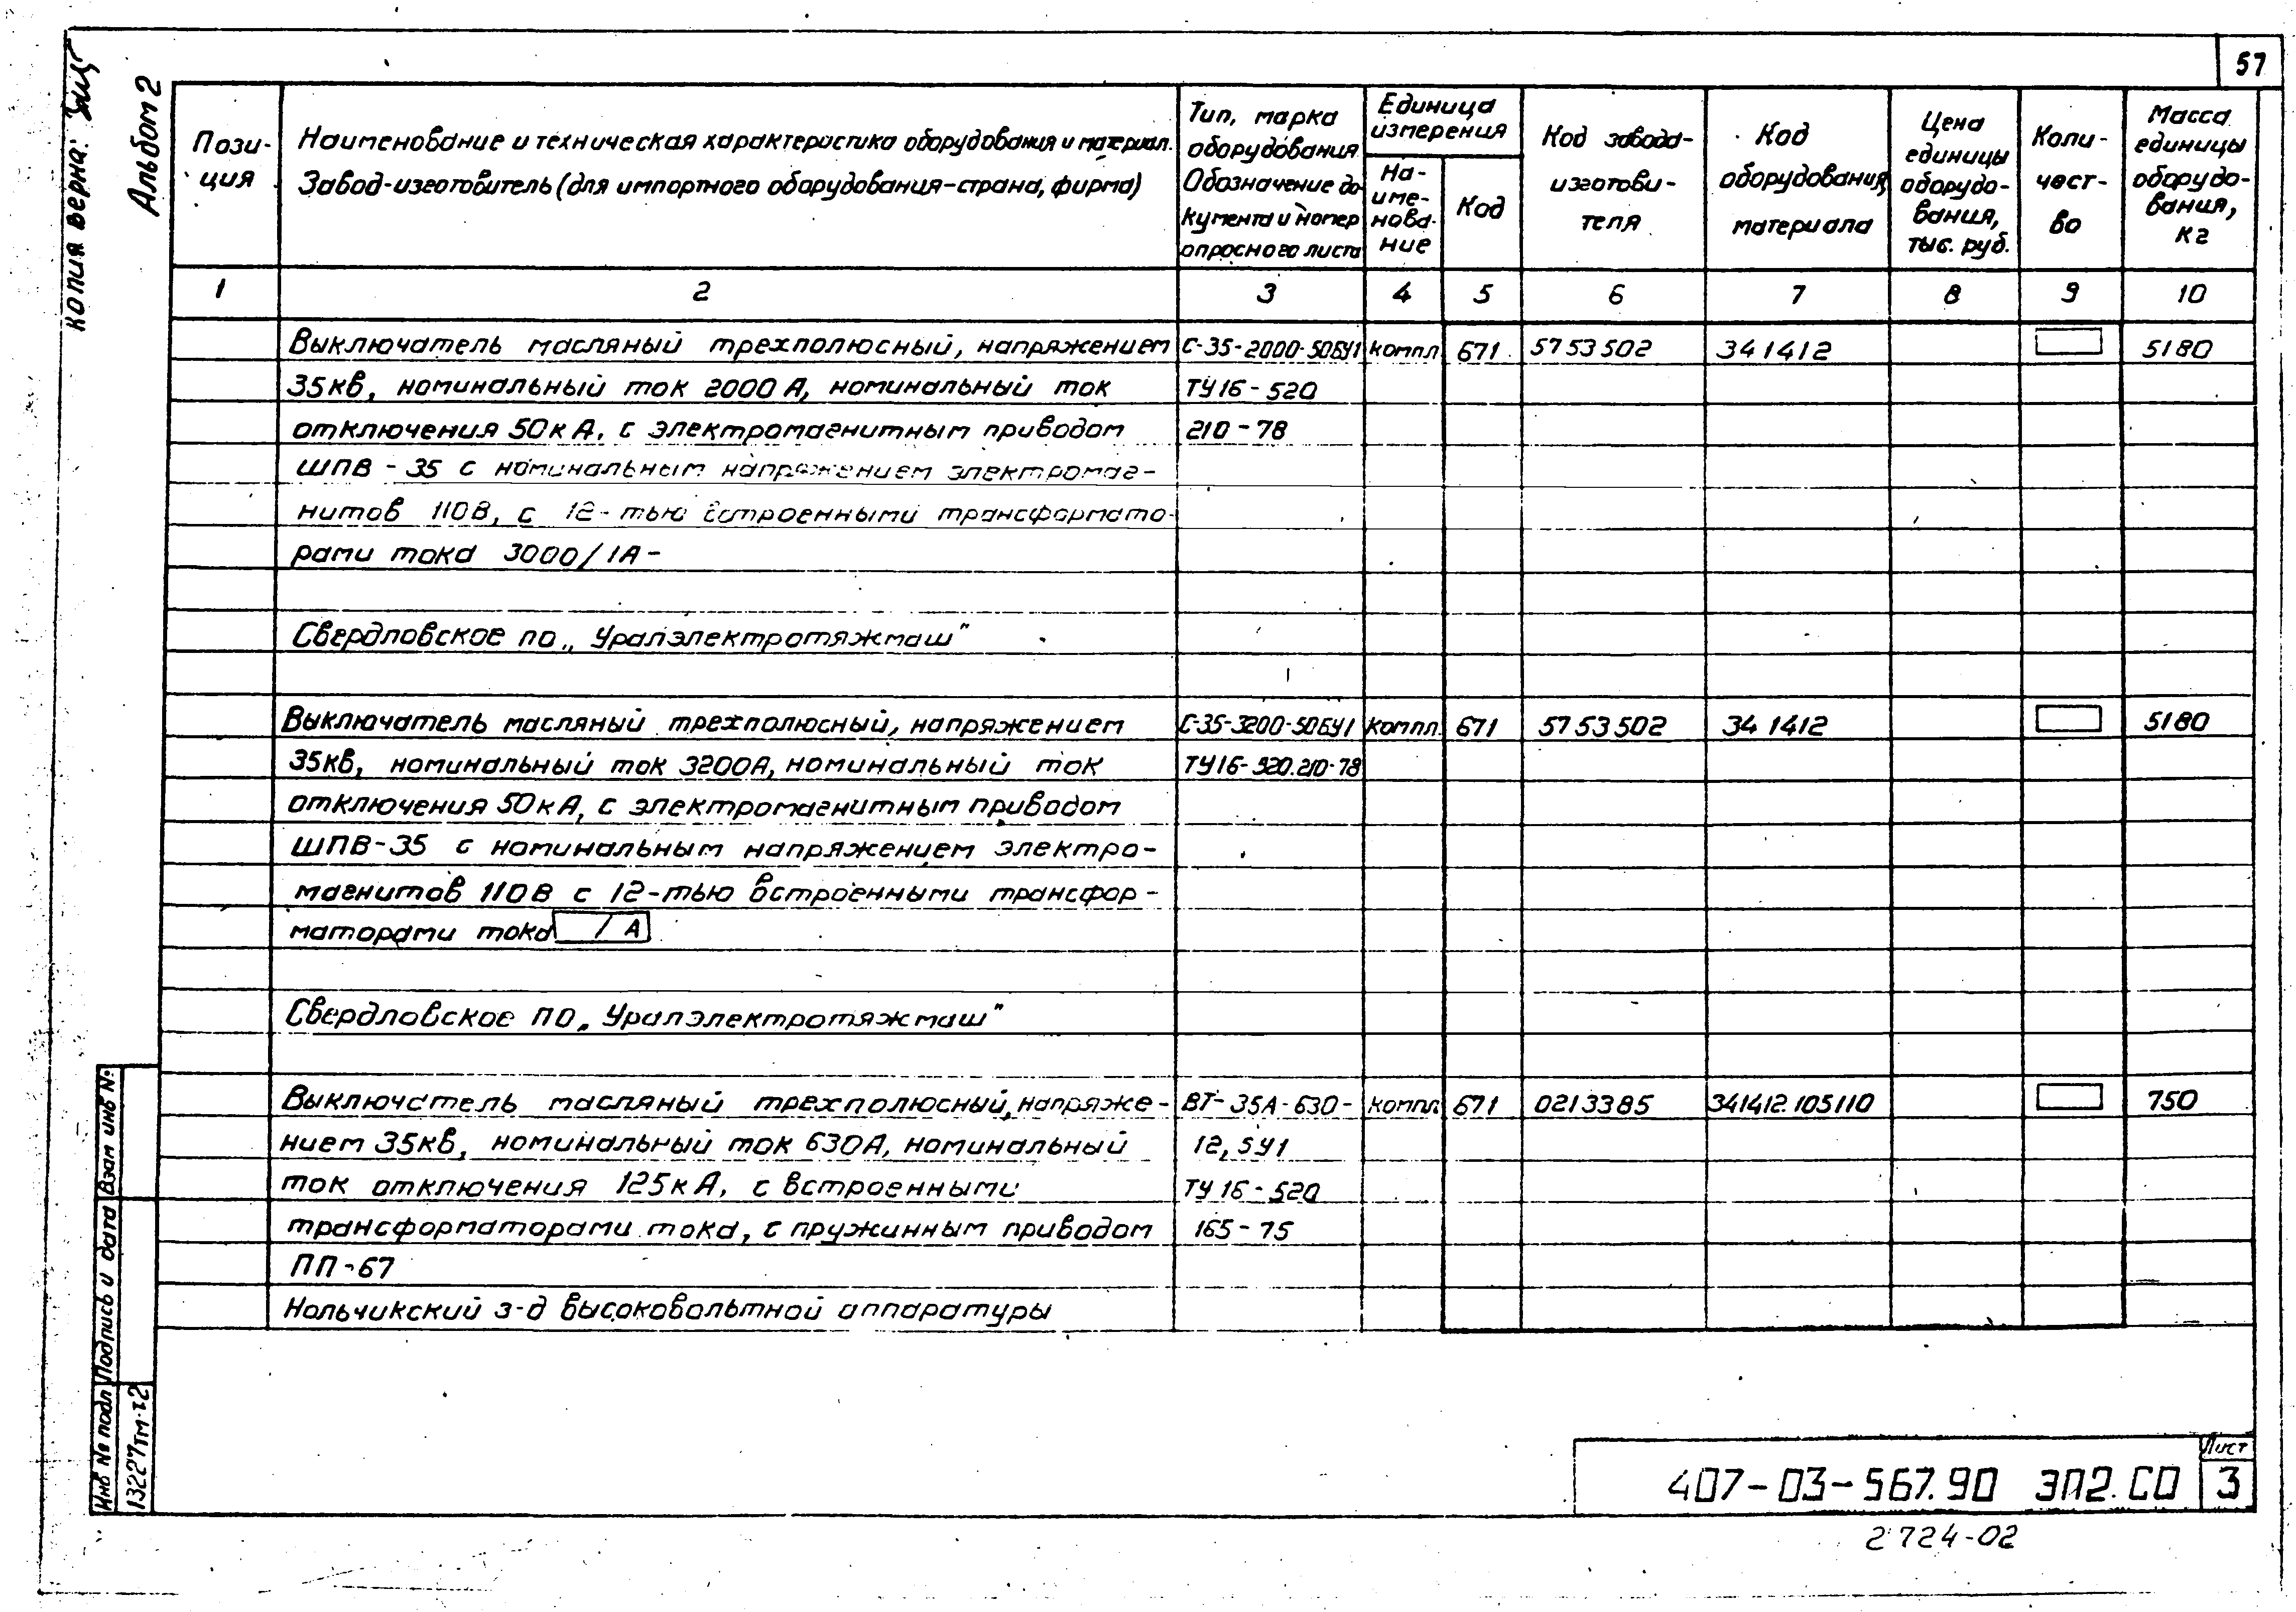 57
Копия верна:
Альбом 2
Пози-
ция
Наименование и техническая характеристика оборудования и материал.
Завод-изготовитель (для импортного оборудования-страна, фирма)
Тип, марка
оборудования.
Обозначение до
кумента и номер
опросного листа
Единица
измерения
На-
име-
нова-
ние
Код
Код завода-
изготови-
теля
Код
оборудования,
материала
Цена
единицы
оборудо-
вания,
тыс. руб.
Коли-
чест-
во
Масса
единицы
оборудо-
вания,
кг
1 2 3 4 5 6 7 8 9 10
Выключатель масляный трехполюсный, напряжением С-35-2000-50БУ1 компл 671 5753502 341412 5180
35кв, номинальный ток 2000 А, номинальный ток ТУ16-520
отключения 50кА, с электромагнитным приводом 210-78
ШПВ-35 с номинальным напряжением электромаг-
нитов 110В, с 12-тью встроенными трансформато-
рами тока 3000/1А-
Свердловское по „Уралэлектротяжмаш"
Выключатель масляный трехполюсный, напряжением С-35-3200-50БУ1 компл. 671 5753502 341412 5180
35кв, номинальный ток 3200А, номинальный ток ТУ16-520.210-78
отключения 50кА, с электромагнитным приводом
ШПВ-35 с номинальным напряжением электро-
магнитов 110В с 12-тью встроенными трансфор-
маторами тока / А
Свердловское ПО „Уралэлектротяжмаш"
Выключатель масляный трехполюсный, напряже- ВТ-35А-630- компл 671 0213385 341412.105110 750
нием 35кв, номинальный ток 630А, номинальный 12,5У1
ток отключения 125кА, с встроенными ТУ16-520
трансформаторами тока, с пружинным приводом 165-75
ПП-67
Нальчикский з-д высоковольтной аппаратуры
Взам инв №
Подпись и дата
Инв № подл
13227тм-т2
407-03-567.90 ЭП2.СО
Лист
3
2724-02